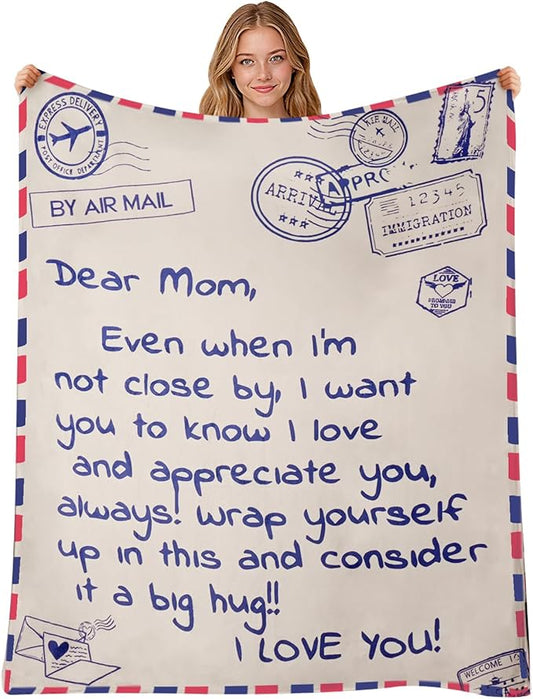 EXPRESS DELIVERY
POST OFFICE DEPARTMENT
AIR MAIL
15
BY AIR MAIL
ARRIVAL
APPRO
12345
IMMIGRATION
LOVE
TO YOU
Dear Mom,
Even when i'm
not close by, I want
you to know I love
and appreciate you,
always! wrap yourself
up in this and consider
it a big hug!!
I LOVE YOU!
WELCOME TO